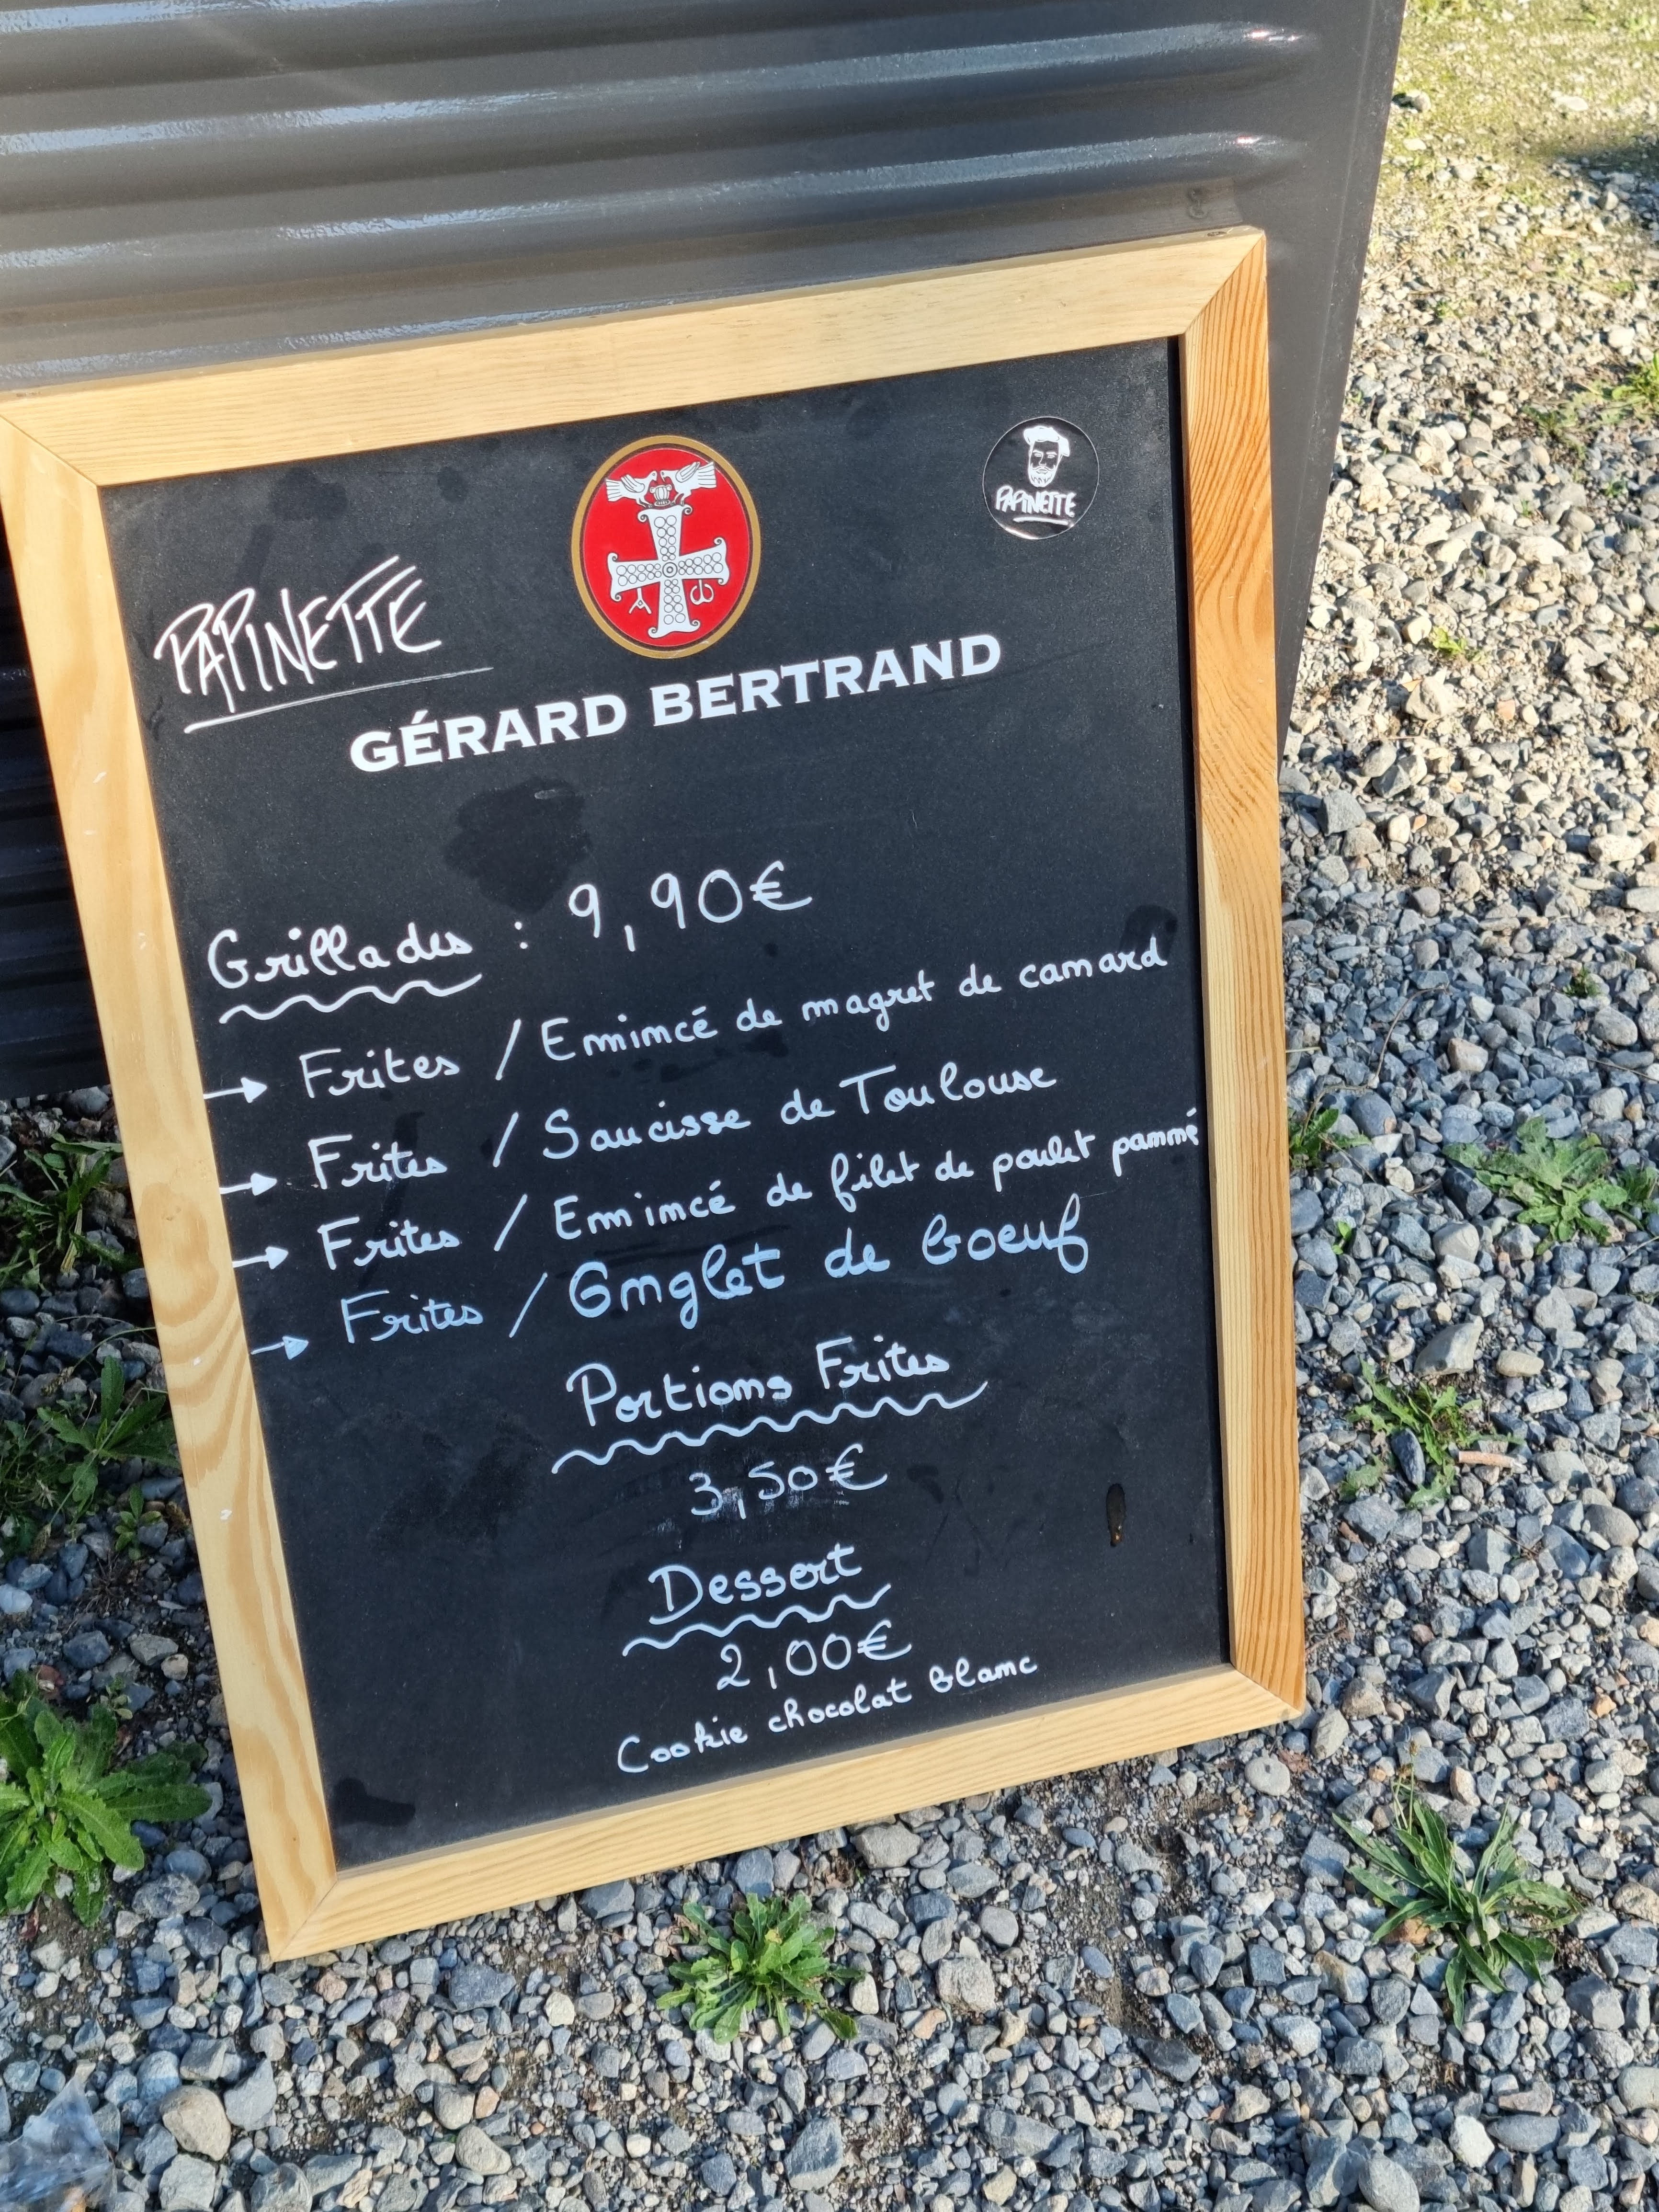 PAPINETTE
PAPINETTE
GÉRARD BERTRAND
Grillades : 9,90€
→ Frites / Emincé de magret de canard
→ Frites / Saucisse de Toulouse
→ Frites / Emincé de filet de poulet panné
→ Frites / Onglet de boeuf
Portions Frites
3,50€
Dessert
2,00€
Cookie chocolat Blanc